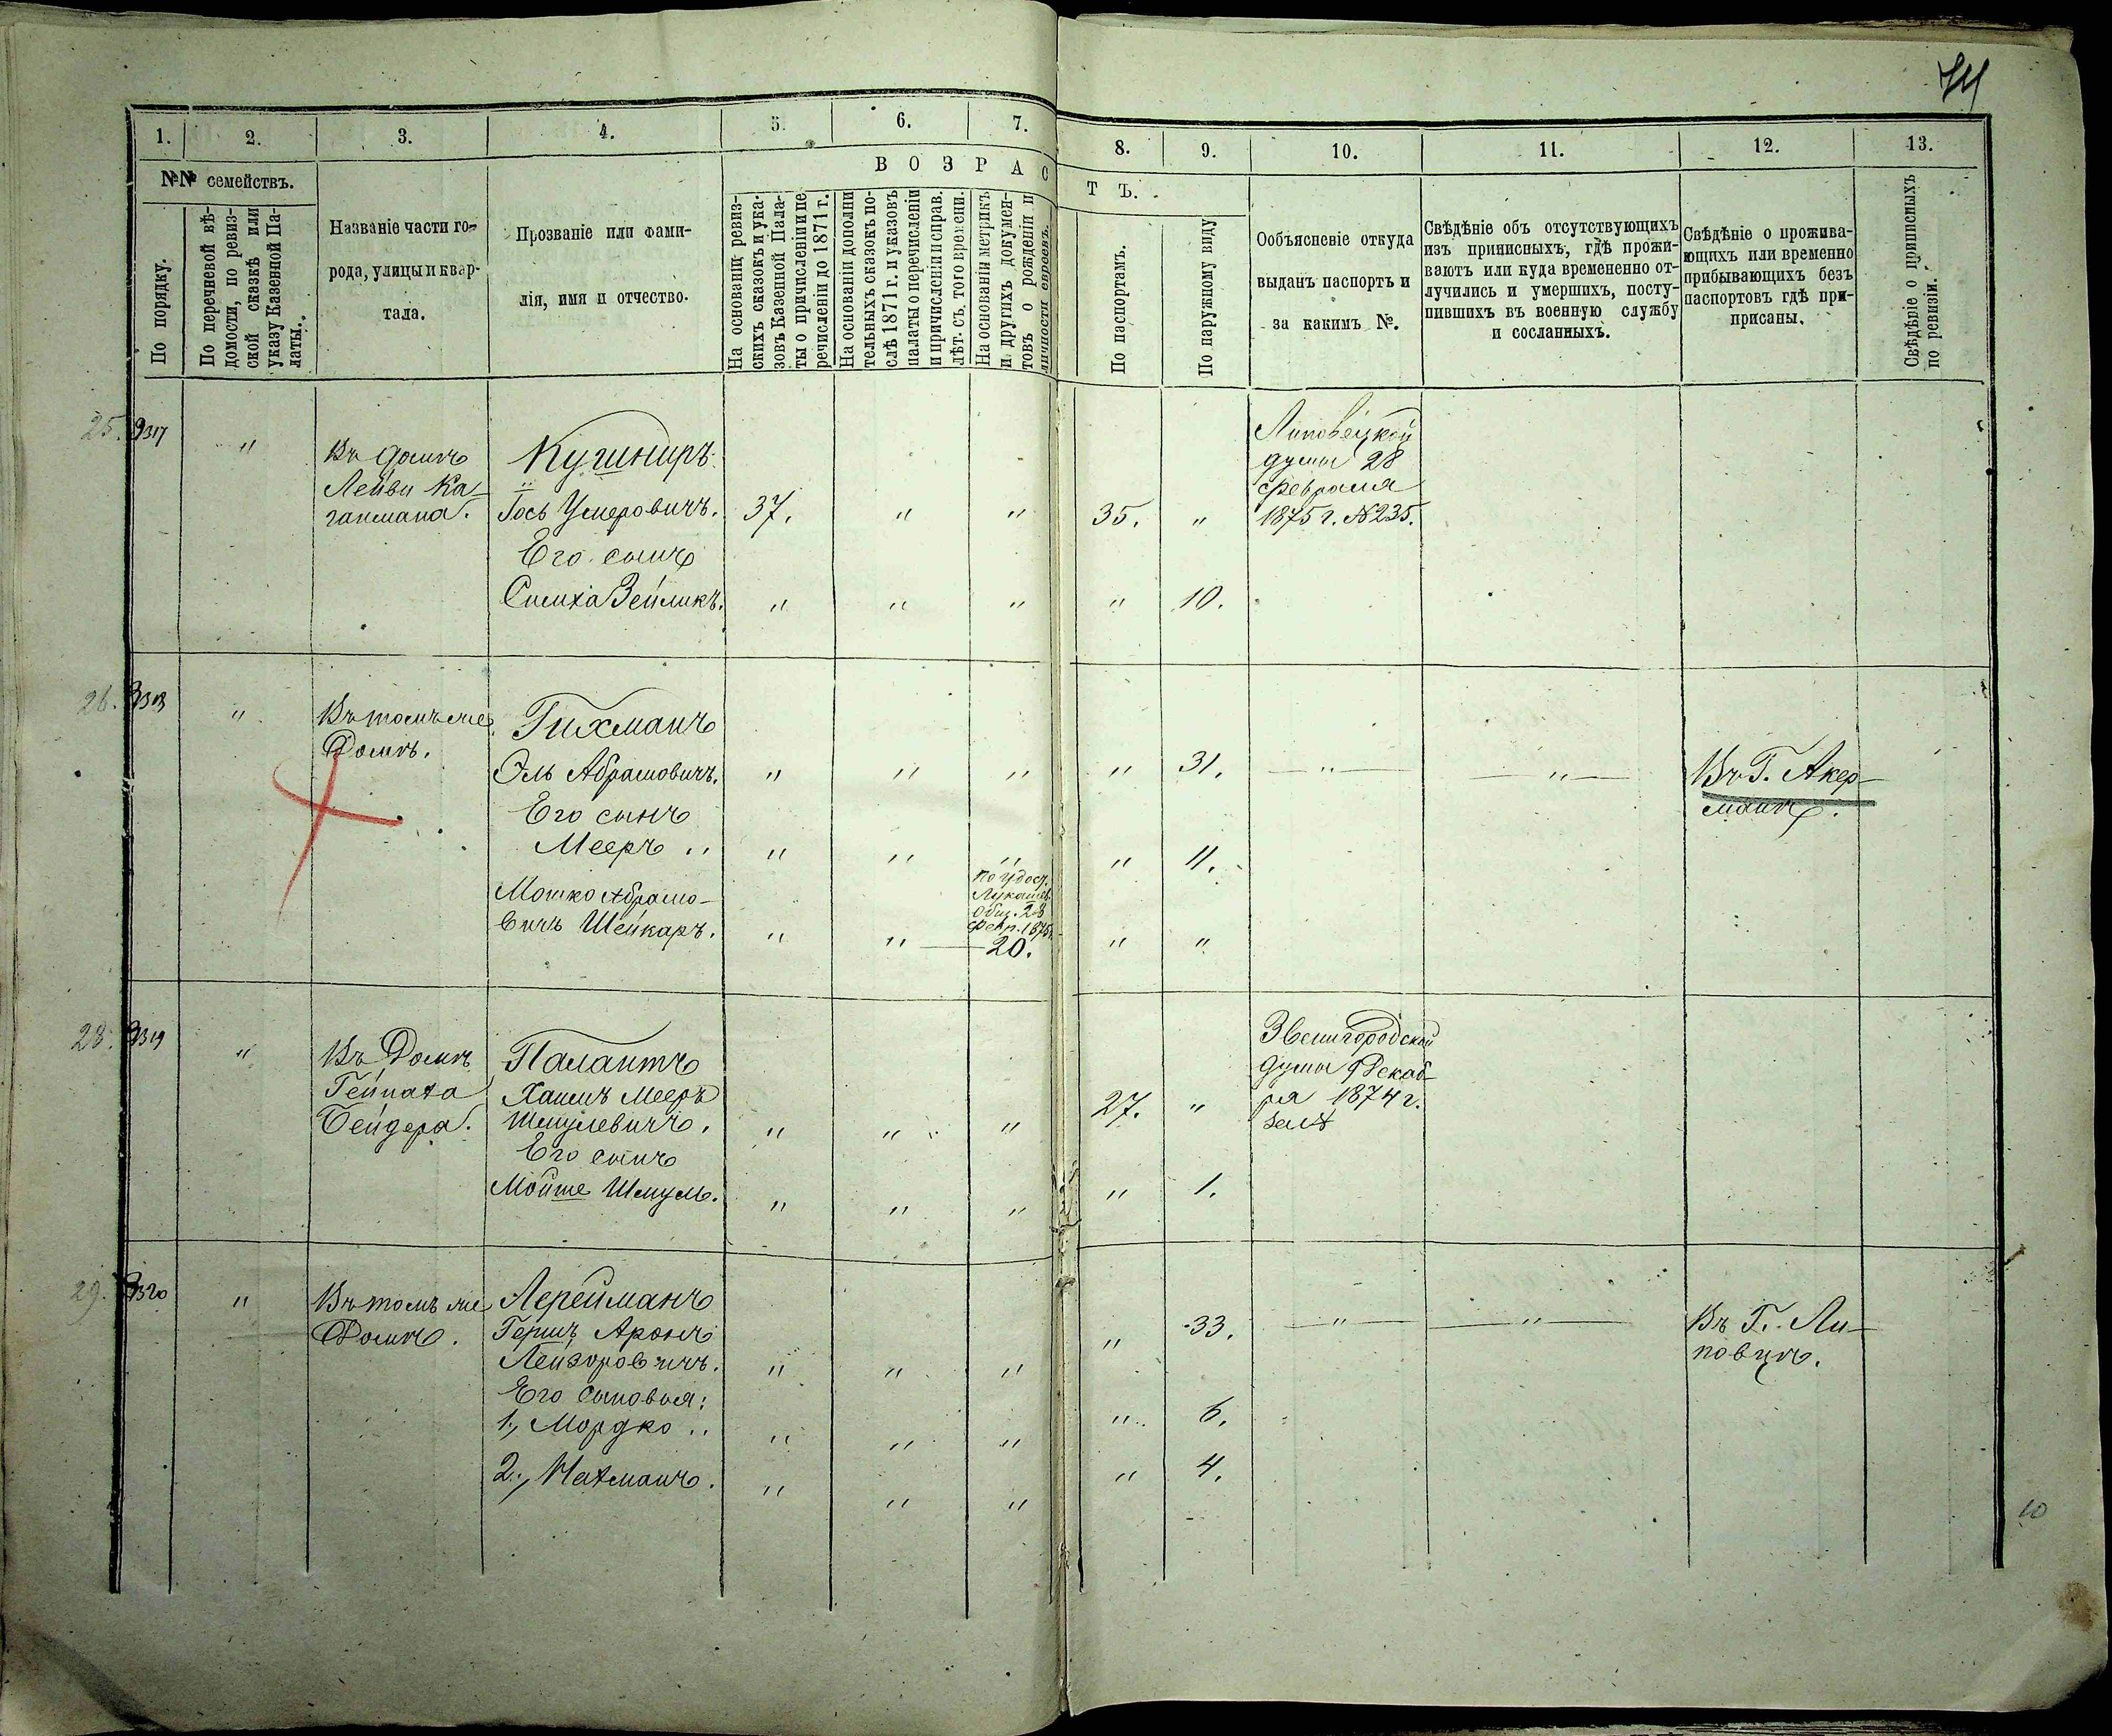 74
1. 2. 3. 4. 5. 6. 7. 8. 9. 10. 11. 12. 13.
№№ семействъ.
По порядку.
По перечневой вѣ-
домости, по ревиз-
ской сказкѣ или
указу Казенной Па-
латы.
Названіе части го-
рода, улицы и квар-
тала.
Прозваніе или фами-
лія, имя и отчество.
ВОЗРАСТЪ.
На основаніи ревиз-
скихъ сказокъ и ука-
зовъ Казенной Пала-
ты о причисленіи и пе
речисленіи до 1871 г.
На основаніи дополни
тельныхъ сказокъ по-
слѣ 1871 г. и указовъ
палаты о перечисленіи
и причисленіи и справ.
лѣт. съ того времени.
На основаніи метрикъ
и другихъ докумен-
товъ о рожденіи и
личности евреевъ.
По паспортамъ.
По наружному виду
Ообъясненіе откуда
выданъ паспортъ и
за какимъ №.
Свѣдѣніе объ отсутствующихъ
изъ приписныхъ, гдѣ прожи-
ваютъ или куда временно от-
лучились и умершихъ, посту-
пившихъ въ военную службу
и сосланныхъ.
Свѣдѣніе о прожива-
ющихъ или временно
прибывающихъ безъ
паспортовъ гдѣ при-
писаны.
Свѣдѣніе о приписныхъ
по ревизіи.
25. 9317 "
Въ домѣ
Лейви Ка-
ганмана.
Кушниръ
Іось Умеровичъ. 37. " " 35. "
Липовецкой
думы 28
февраля
1875 г. №235.
Его сынъ
Симха Зейликъ. " " " " 10.
26. 9318 "
Въ томъ же
Домѣ.
Гихманъ
Эль Абрамовичъ. " " " " 31. " "
Въ Г. Акер-
манѣ.
Его сынъ
Мееръ " " " " " 11.
Мошко Абрамо-
вичъ Шейкаръ. " "
По удост.
Общ. 28
Февр. 1875
20. " "
28. 9319 "
Въ Домѣ
Бейдера.
Палантъ
Хаимъ Мееръ
Шмулевичъ. " " " 27. "
Звенигородской
думы 9 Декаб-
ря 1874 г.
за №
Его сынъ
Мойше Шмуль. " " " " 1.
29. 9320 "
Въ томъ же
Домѣ.
Лерейманъ
Гершъ Аронъ
Лейзоровичъ. " " " " 33. " "
Въ Г. Ли-
повцѣ.
Его сыновья:
1, Мордко " " " " " 6.
2, Нахманъ. " " " " 4.
10